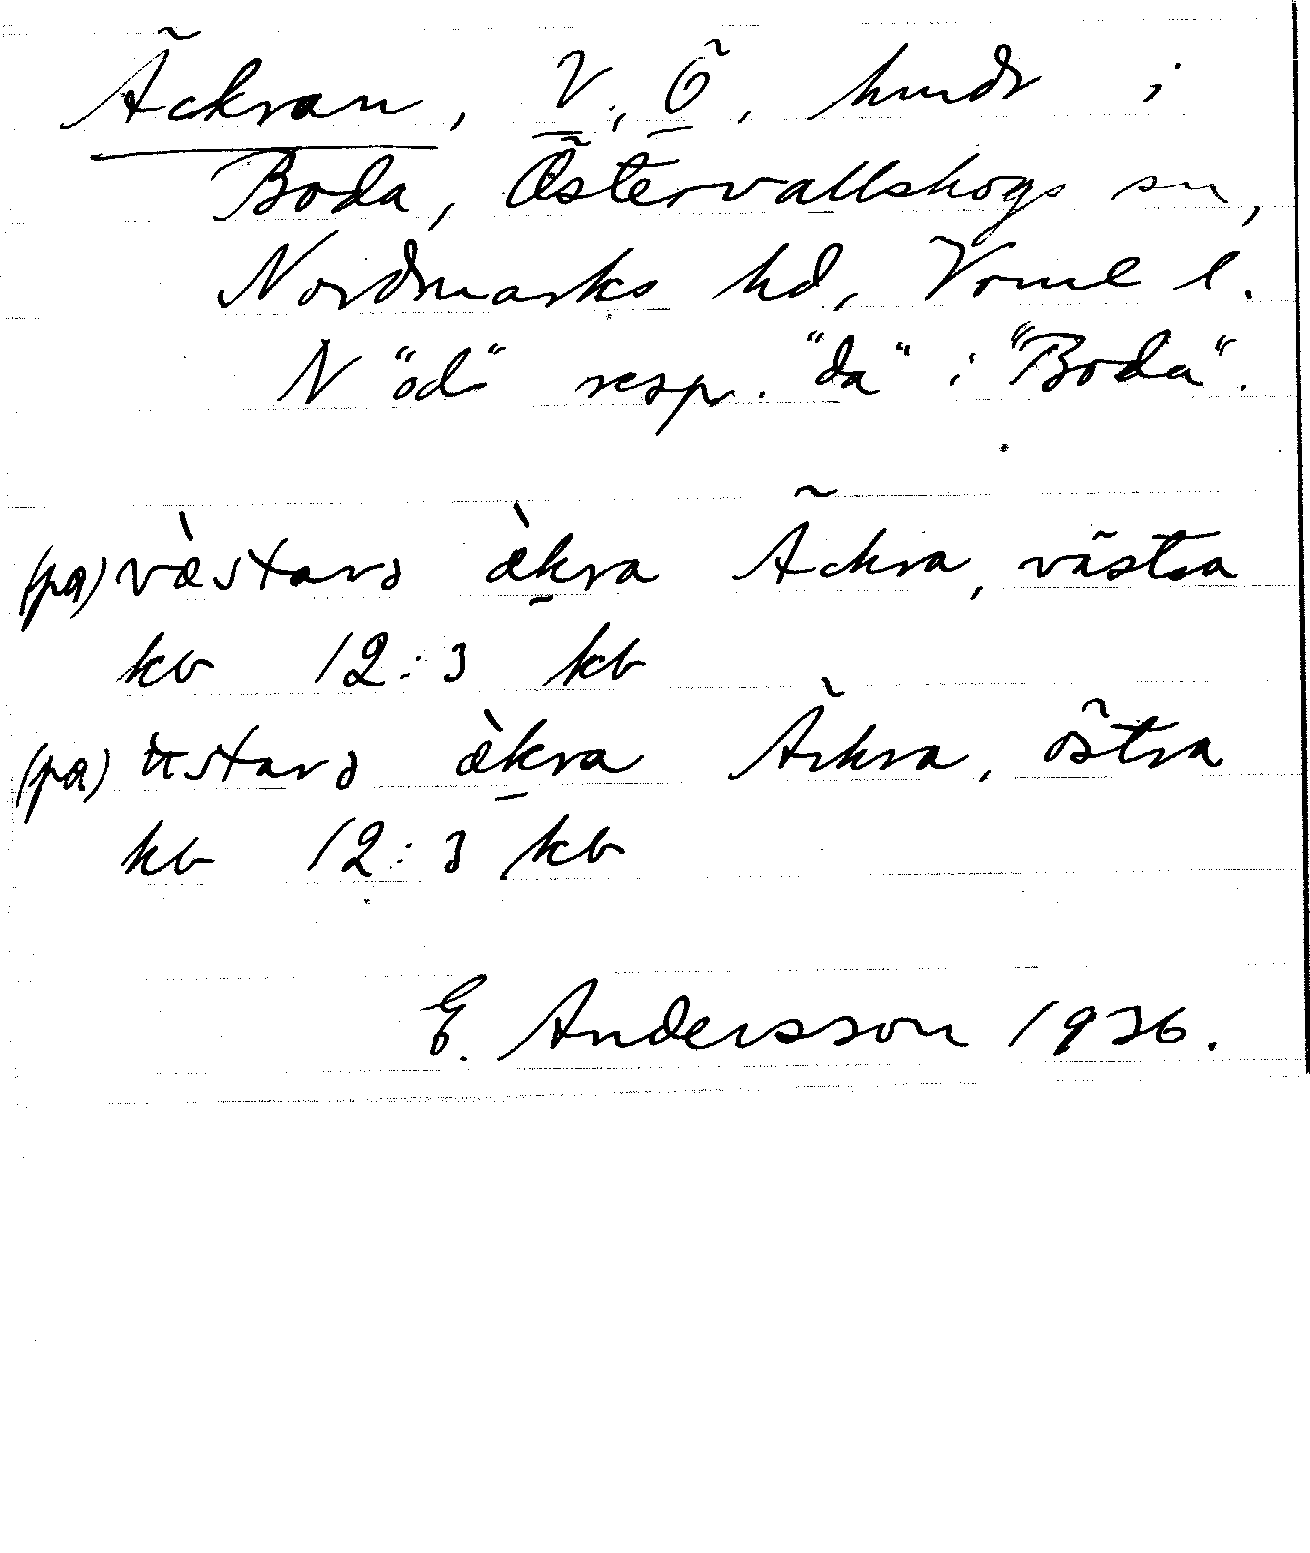 Äckran, V., Ö, hmdr i
Boda, Östervallskogs sn,
Nordmarks hd, Vrml l.
N "od" resp. "da" i "Boda".
(pɑ) væ̀starə æ̀kra Äckra, västra
kb 12:3 kb
(pɑ) starə æ̀kra Äckra, östra
kb 12:3 kb
E. Andersson 1936.